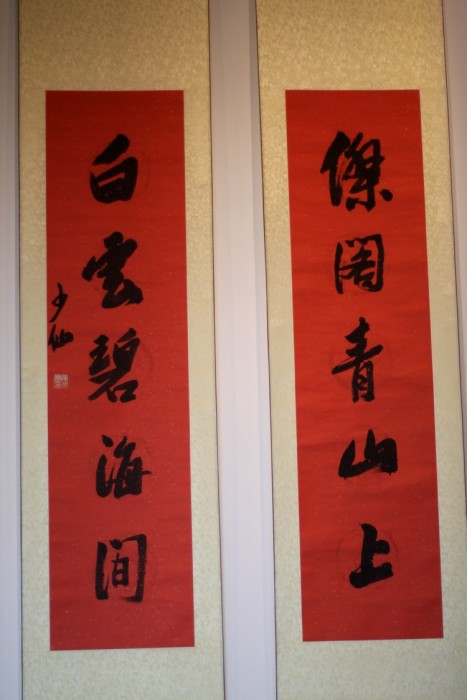 傑閣青山上
白雲碧海間
少仙